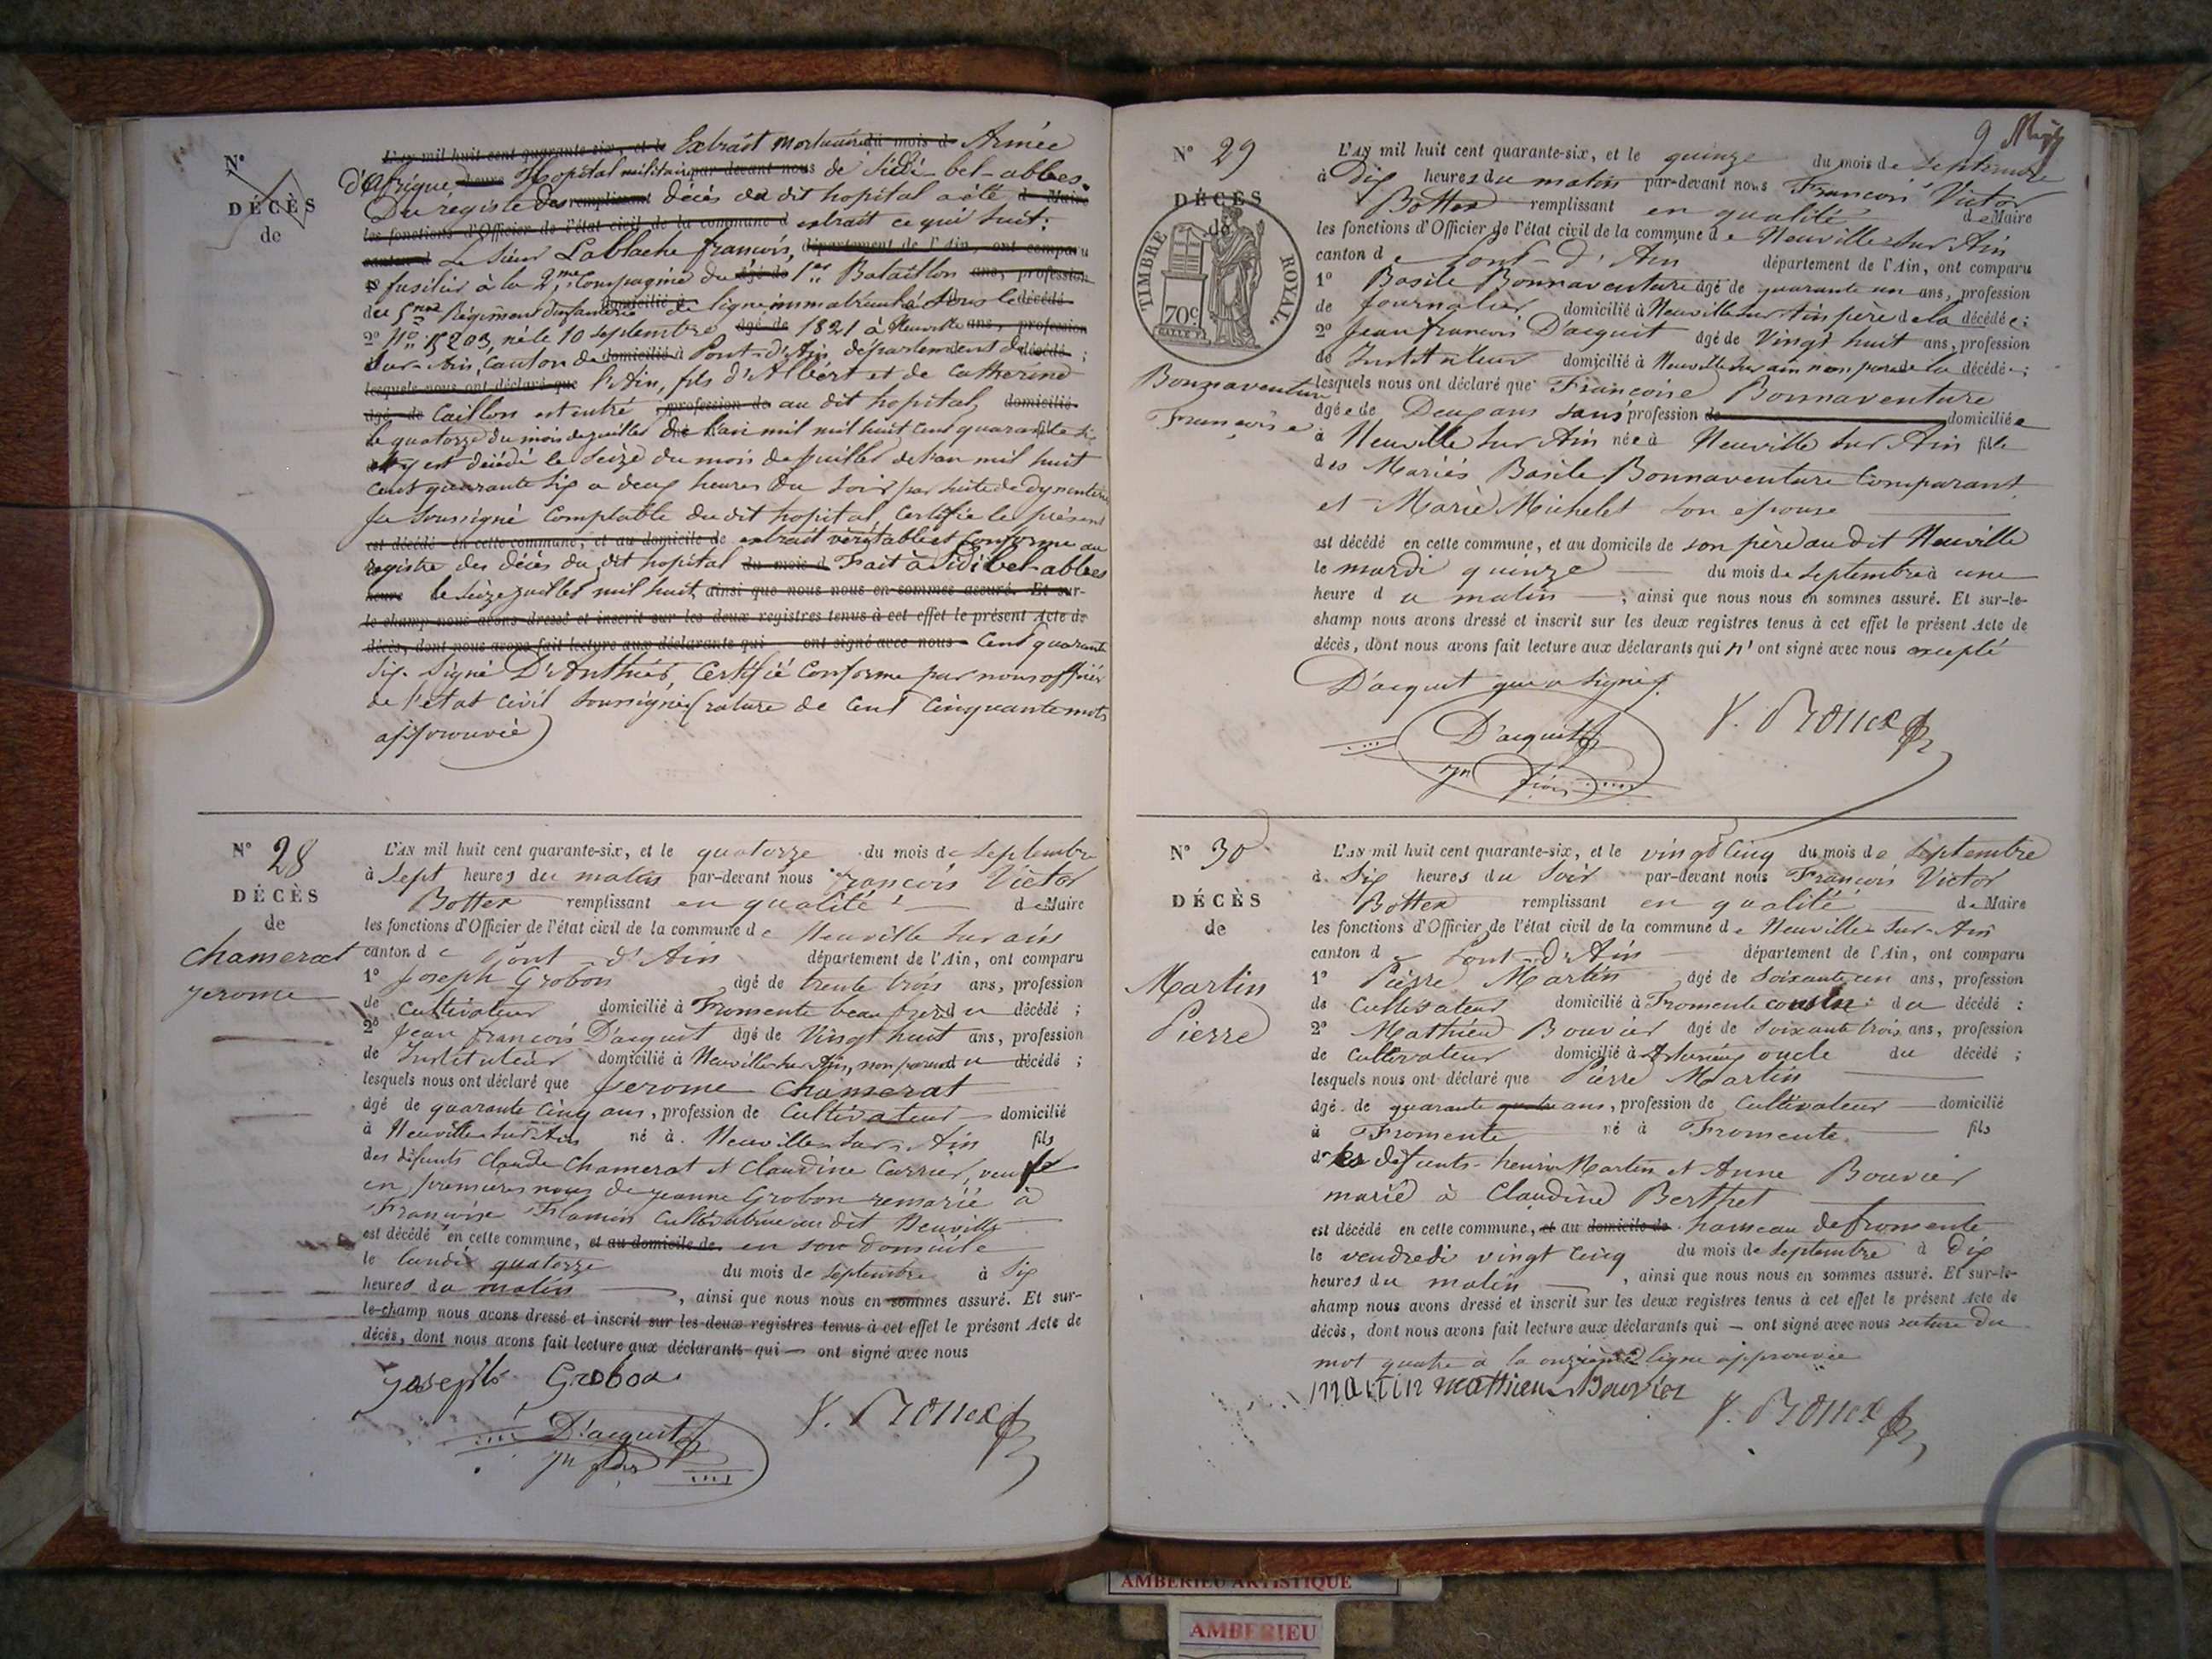 N°
DÉCÈS
de
L'AN mil huit cent quarante-six, et le Extrait mortuaire du mois d Armée
d'Afrique heure Hopital militaire par-devant nous de Sidi-bel-abbes.
Du registre des remplissant décès du dit hopital a été d Maire
les fonctions d'Officier de l'état civil de la commune d extrait ce qui suit:
canton d Le Sieur Lablache françois, département de l'Ain, ont comparu
1° fusilier à la 2me Compagnie du âgé de 1er Bataillon ans, profession
du 5me Régiment d'infanterie domicilié à de ligne immatriculé sous le décédé
2° N° 5203, né le 10 septembre âgé de 1821 à Neuville ans, profession
Sur-Ain, canton de domicilié à Pont-d'Ain, département de décédé ;
lesquels nous ont déclaré que l'Ain, fils d'Albert et de Catherine
âgé de Caillon est entré profession de au dit hopital, domicilié
le quatorze du mois de juillet de l'an mil huit cent quarante six
et y est décédé le Seize du mois de juillet de l'an mil huit
cent quarante six a deux heures du soir par suite de dyssenterie
Je soussigné Comptable du dit hopital Certifie le présent
est décédé en cette commune, et au domicile de extrait véritable et conforme au
registre des décès du dit hopital du mois d Fait à Sidi bel-abbes
heure le Seize juillet mil huit ainsi que nous nous en sommes assuré. Et sur-
le-champ nous avons dressé et inscrit sur les deux registres tenus à cet effet le présent Acte de
décès, dont nous avons fait lecture aux déclarants qui ont signé avec nous Cent quarante
Six. Signé D'Anthiés, Certifié Conforme par nous officier
de l'état civil soussigné (rature de Cent Cinquante mots
approuvée)
N° 28
DÉCÈS
de
Chamerat
Jerome
L'AN mil huit cent quarante-six, et le quatorze du mois de Septembre
à Sept heures du matin par-devant nous François Victor
Bottex remplissant en qualité de Maire
les fonctions d'Officier de l'état civil de la commune de Neuville sur ain
canton de Pont-d'Ain département de l'Ain, ont comparu
1° Joseph Grobon âgé de trente trois ans, profession
de Cultivateur domicilié à Fromente beau frère du décédé ;
2° Jean françois D'acquit âgé de Vingt huit ans, profession
de Instituteur domicilié à Neuville sur Ain, non parent du décédé ;
lesquels nous ont déclaré que Jerome Chamerat
âgé de quarante Cinq ans, profession de Cultivateur domicilié
à Neuville sur Ain né à Neuville sur Ain fils
des défunts Claude Chamerat et Claudine Carrier, veuf
en premieres noces de jeanne Grobon remarié à
Françoise Flamin Cultivatrice au dit Neuville
est décédé en cette commune, et au domicile de en son domicile
le lundi quatorze du mois de Septembre à Six
heures du matin, ainsi que nous nous en sommes assuré. Et sur-
le-champ nous avons dressé et inscrit sur les deux registres tenus à cet effet le présent Acte de
décès, dont nous avons fait lecture aux déclarants qui — ont signé avec nous
Joseph Grobon
D'acquit
Jn fçois
V. Bottex
9
N° 29
DÉCÈS
de
TIMBRE ROYAL.
70c
Bonnaventure
Françoise
L'AN mil huit cent quarante-six, et le quinze du mois de Septembre
à Dix heures du matin par-devant nous François Victor
Bottex remplissant en qualité de Maire
les fonctions d'Officier de l'état civil de la commune de Neuville sur Ain
canton de Pont-d'Ain département de l'Ain, ont comparu
1° Basile Bonnaventure âgé de quarante un ans, profession
de Journalier domicilié à Neuville sur Ain père de la décédée ;
2° Jean françois D'acquit âgé de Vingt huit ans, profession
de Instituteur domicilié à Neuville sur ain non parent de la décédée ;
lesquels nous ont déclaré que Françoise Bonnaventure
âgée de Deux ans sans profession de domiciliée
à Neuville sur Ain née à Neuville sur Ain fille
des Mariés Basile Bonnaventure Comparant
et Marie Michelet son epouse
est décédé en cette commune, et au domicile de son père au dit Neuville
le mardi quinze du mois de Septembre à une
heure du matin ; ainsi que nous nous en sommes assuré. Et sur-le-
champ nous avons dressé et inscrit sur les deux registres tenus à cet effet le présent Acte de
décès, dont nous avons fait lecture aux déclarants qui n'ont signé avec nous excepté
D'acquit qui a signé.
D'acquit
Jn fçois
V. Bottex
N° 30
DÉCÈS
de
Martin
Pierre
L'AN mil huit cent quarante-six, et le vingt Cinq du mois de Septembre
à Six heures du Soir par-devant nous François Victor
Bottex remplissant en qualité de Maire
les fonctions d'Officier de l'état civil de la commune de Neuville-Sur-Ain
canton de Pont-d'Ain département de l'Ain, ont comparu
1° Pierre Martin âgé de Soixante un ans, profession
de Cultivateur domicilié à Fromente cousin du décédé ;
2° Mathieu Bouvier âgé de Soixante trois ans, profession
de Cultivateur domicilié à oncle du décédé ;
lesquels nous ont déclaré que Pierre Martin
âgé de quarante quatre ans, profession de Cultivateur domicilié
à Fromente né à Fromente fils
des défunts henri Martin et Anne Bouvier
marié à Claudine Berthet
est décédé en cette commune, et au domicile de hameau de fromente
le vendredi vingt Cinq du mois de Septembre à Dix
heures du matin, ainsi que nous nous en sommes assuré. Et sur-le-
champ nous avons dressé et inscrit sur les deux registres tenus à cet effet le présent Acte de
décès, dont nous avons fait lecture aux déclarants qui — ont signé avec nous rature du
mot quatre à la onzième ligne approuvée
martin mathieu Bouvier
V. Bottex
AMBERIEU ARTISTIQUE
AMBERIEU